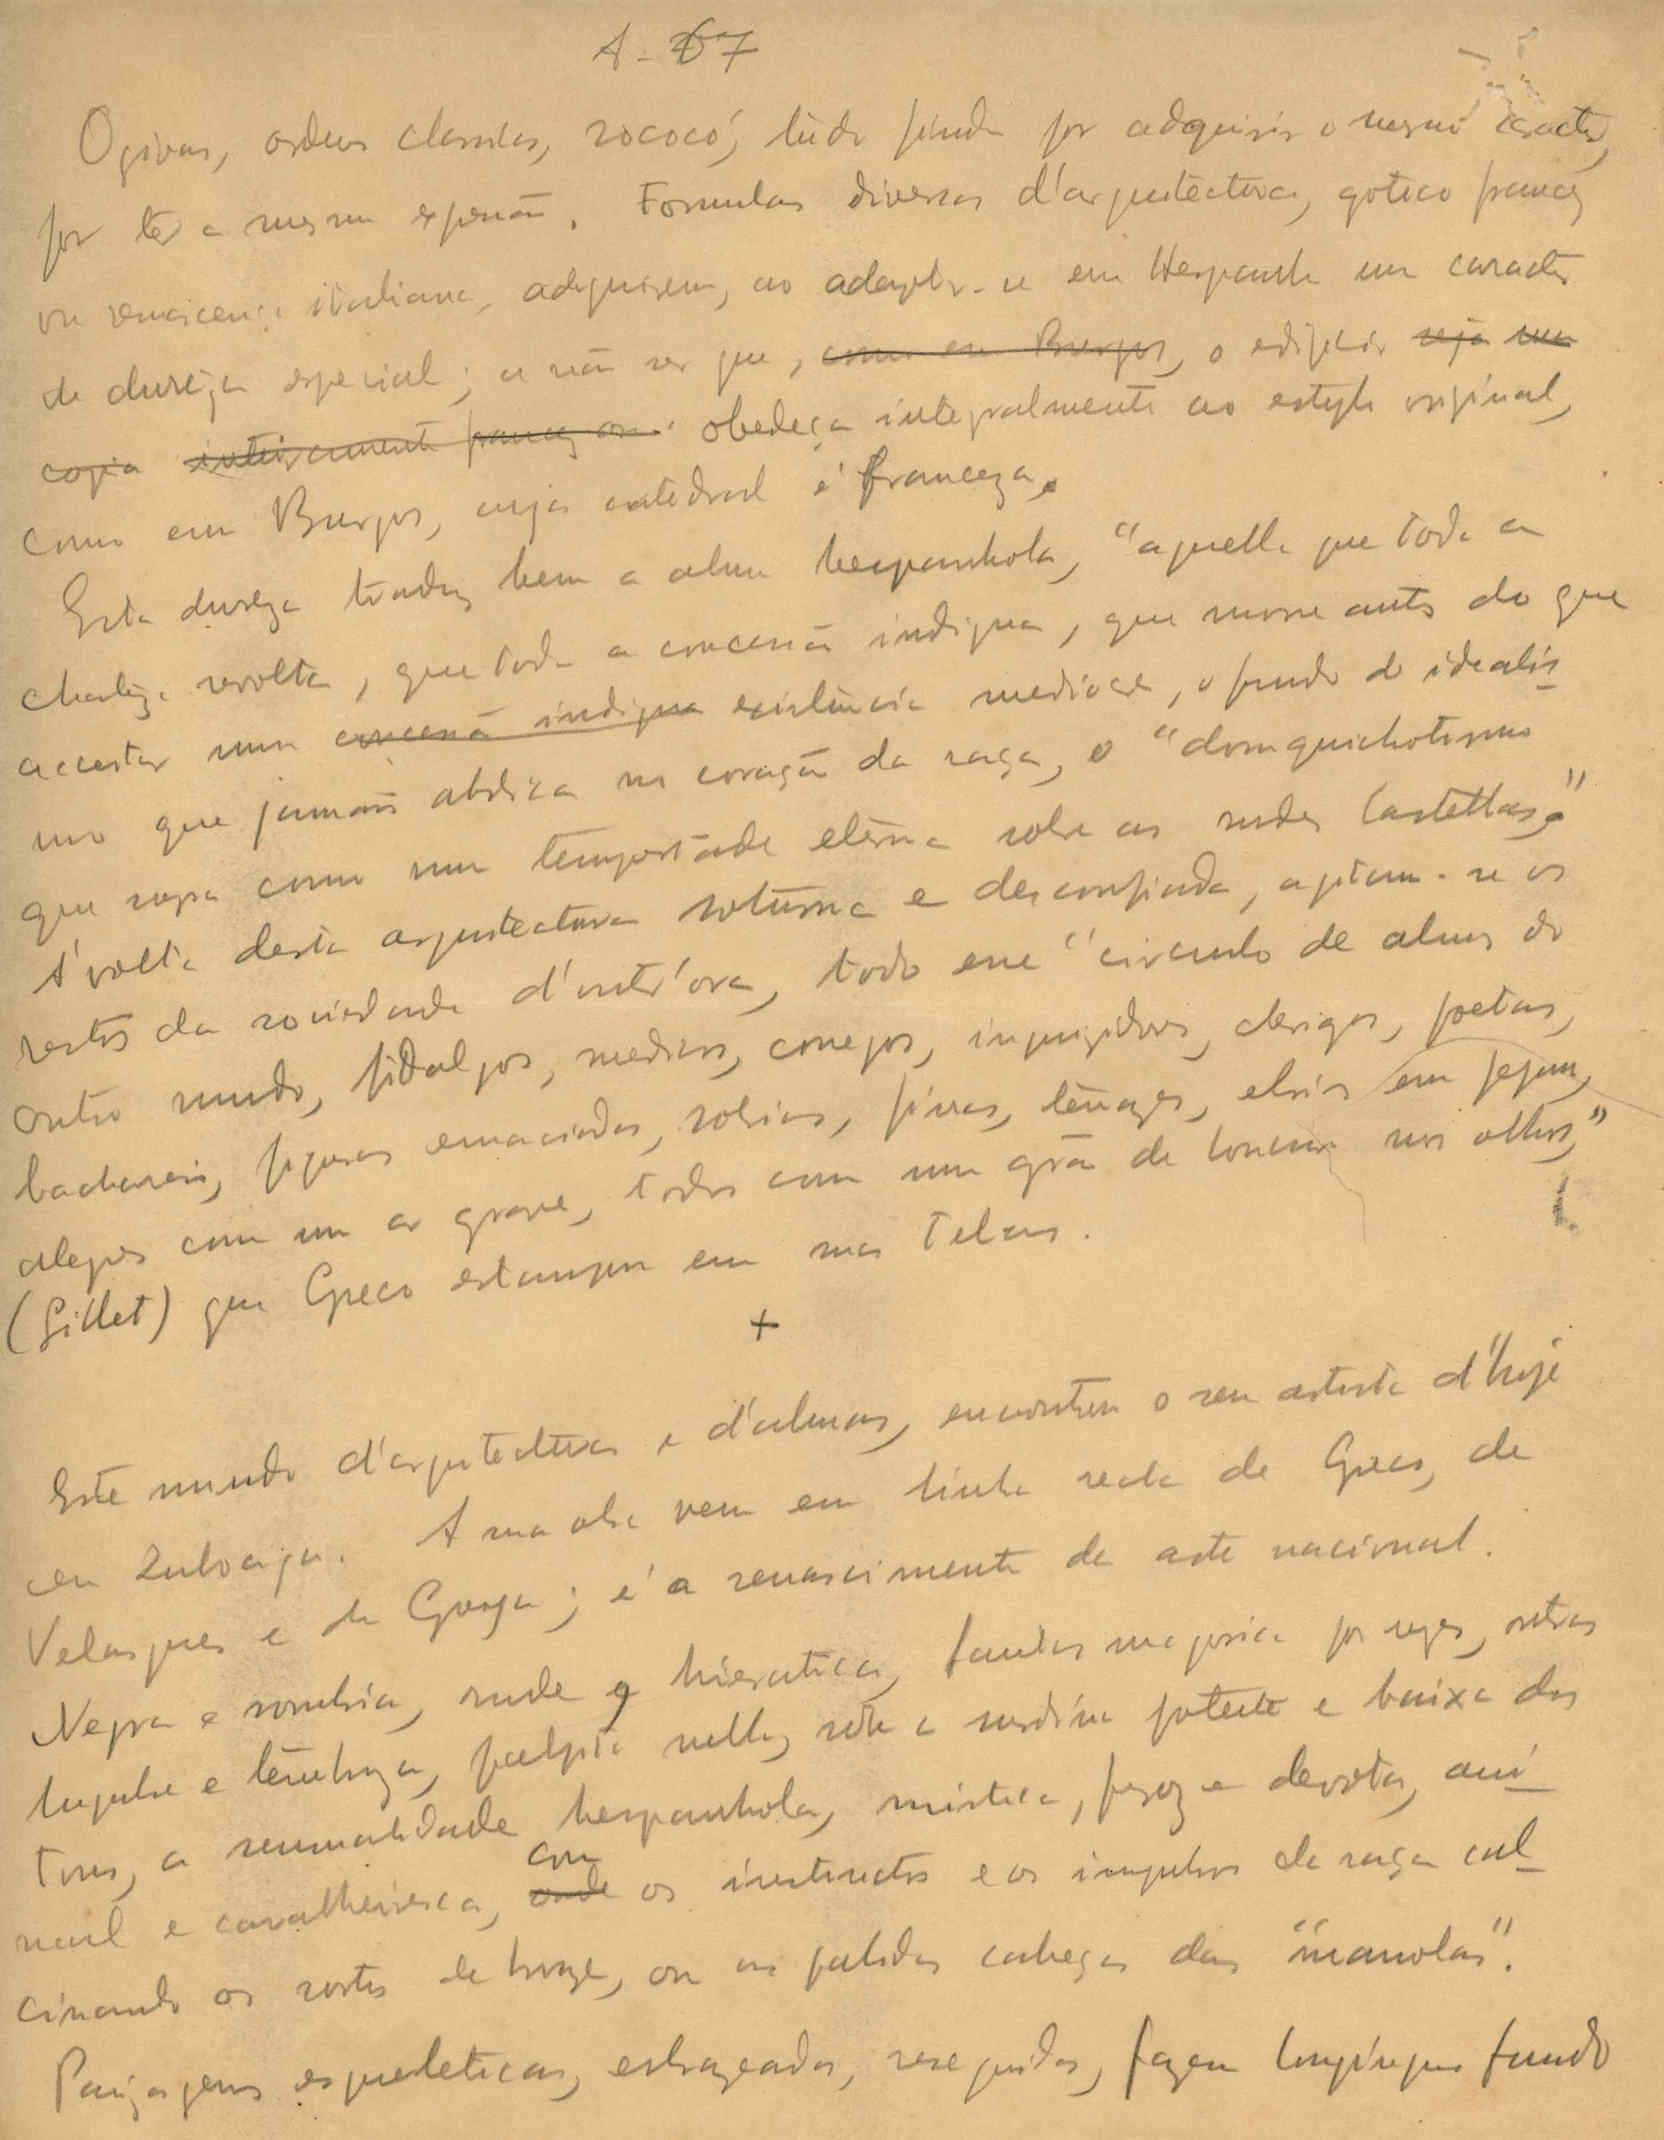 A-67
Ogivas, ordens classicas, rococó, tudo finda por adquirir o mesmo caracter,
por ter a mesma expressão. Formulas diversas d'arquitectura, gotico francez
ou renascença italiana, adquirem, ao adaptar-se em Hespanha um caracter
de dureza especial; a não ser que, como em Burgos, o edificio seja uma
copia inteiramente franceza ou obedeça integralmente ao estylo original,
como em Burgos, cuja catedral é franceza.
Esta dureza traduz bem a alma hespanhola, "aquella que toda a
chateza revolta, que toda a concessão indigna, que morre antes do que
acceitar uma concessão indigna existencia mediocre, o fundo de idealis-
mo que jamais abdica no coração da raça, o "domquichotismo
que sopra como uma tempestade eterna sobre as rudes Castellas."
Á volta desta arquitectura soturna e desconfiada, agitam-se os
restos da sociedade d'outr'ora, todo esse "circulo de almas do
outro mundo, fidalgos, medicos, conegos, inquizidores, clerigos, poetas,
bachareis, figuras emaciadas, sobrias, finas, tenazes, ebrios em jejum,
alegres com um ar grave, todos com um grão de loucura nos olhos,"
(Gillet) que Greco estampou em suas telas.
+
Este mundo d'arquitecturas e d'almas, encontrou o seu artista d'hoje
em Zuloaga. A sua obra vem em linha recta de Greco, de
Velasques e de Goya; é a renascimento da arte nacional.
Negra e sombria, rude e hieratica, fantasmagorica por vezes, outras
lugubre e tenebroza, palpita nella, sob a surdina potente e baixa dos
tons, a sensualidade hespanhola, mistica, feroz e devota, ani-
mal e cavalheiresca, onde com os instinctos e os impulsos da raça cal-
cinando os rostos de bronze, ou as palidas cabeças das "manolas".
Paizagens esqueleticas, esbrazeadas, resequidas, fazem longinquo fundo